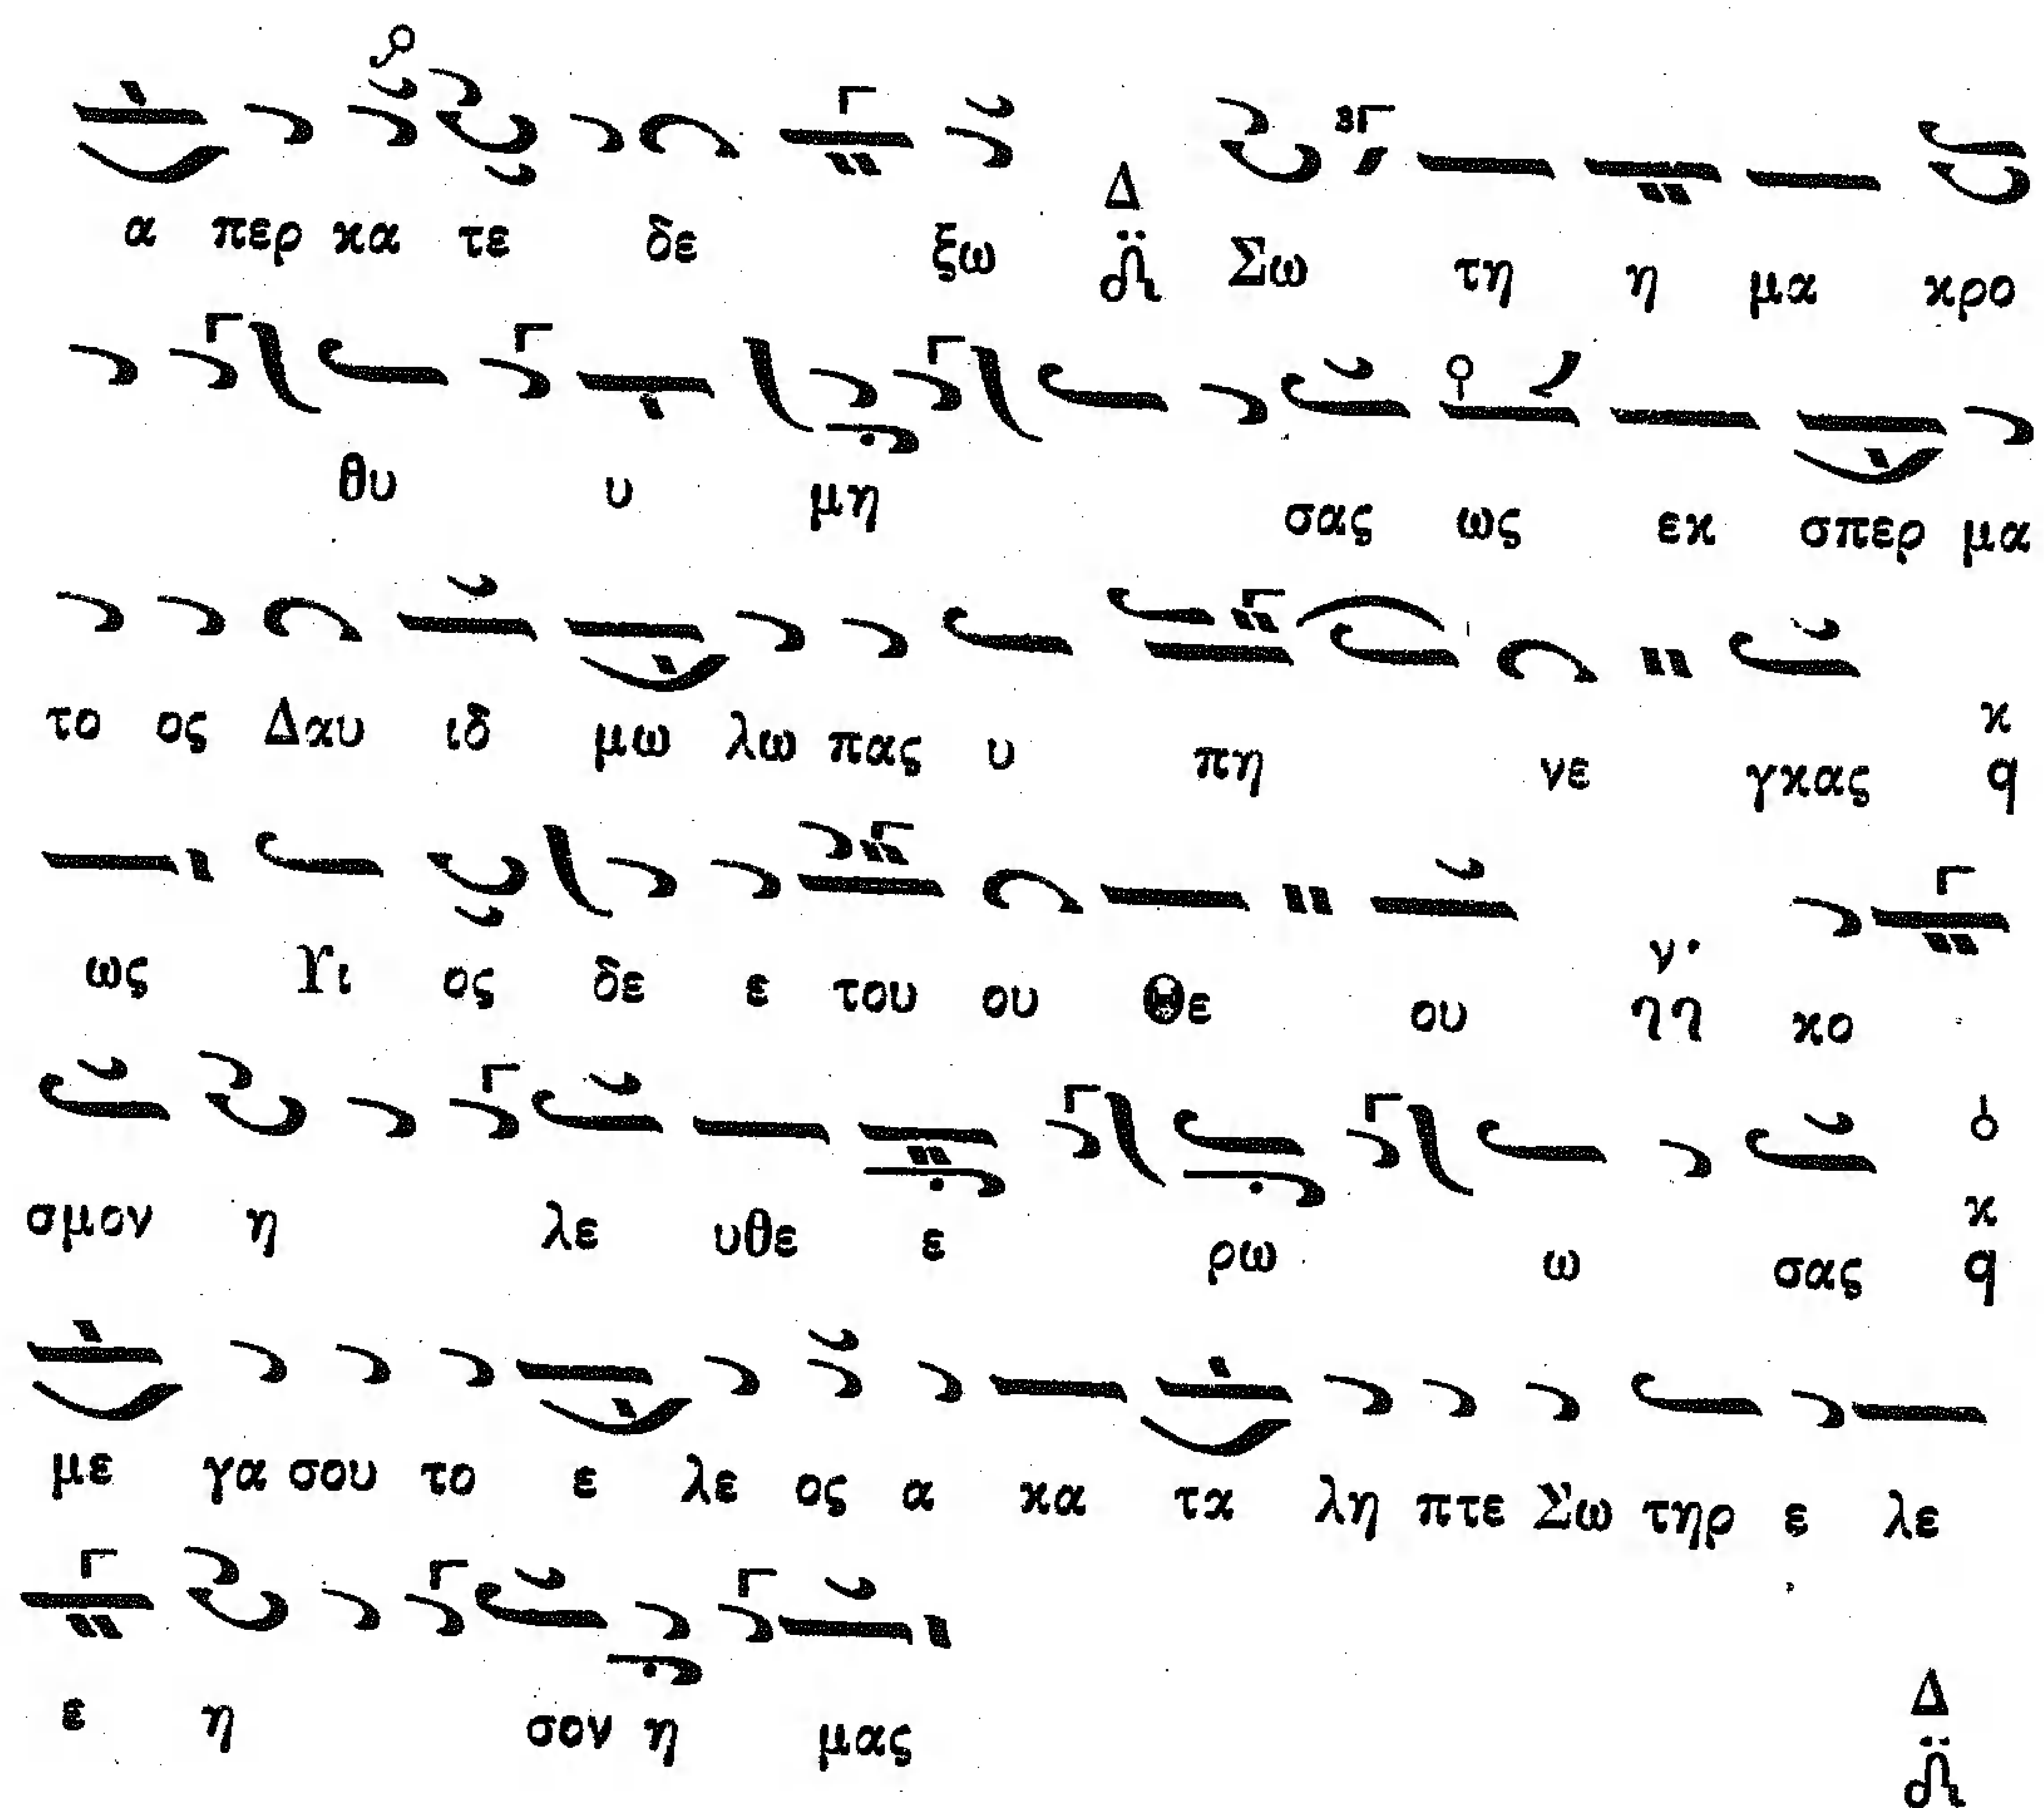 α περ κα τε δε ξω Δ Σω τη η μα κρο
θυ υ μη σας ως εκ σπερ μα
το ος Δαυ ιδ μω λω πας υ πη νε γκας κ q
ως Υι ος δε ε του ου Θε ου ν ηη κο
σμον η λε υθε ε ρω ω σας κ q
με γα σου το ε λε ος α κα τα λη πτε Σω τηρ ε λε
ε η σον η μας Δ